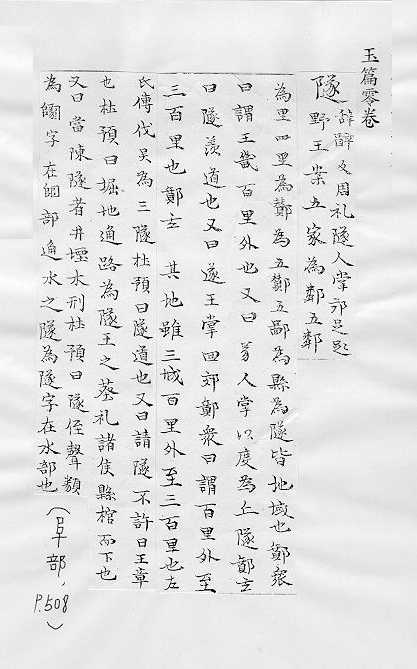 玉篇零卷
隧 辞醉 反周礼隧人掌邦之野
野王案五家為鄰五鄰
為里四里為酇為五酇五鄙為縣為隧皆地域也鄭衆
曰謂王畿百里外也又曰 人掌以度為丘隧鄭玄
曰隧羡道也又曰遂王掌四郊鄭衆曰謂百里外至
三百里也鄭玄 其地雖三城百里外至三百里也左
氏傳伐吴為三隧杜預曰隧道也又曰請隧不許曰王章
也杜預曰掘地通路為隧王之葬礼諸侯縣棺而下也
又曰當陳隧者井堙木刊杜預曰隧徑聲類
為䲨字在䲨部通水之隧為隧字在水部也
(阜部,
P.508)